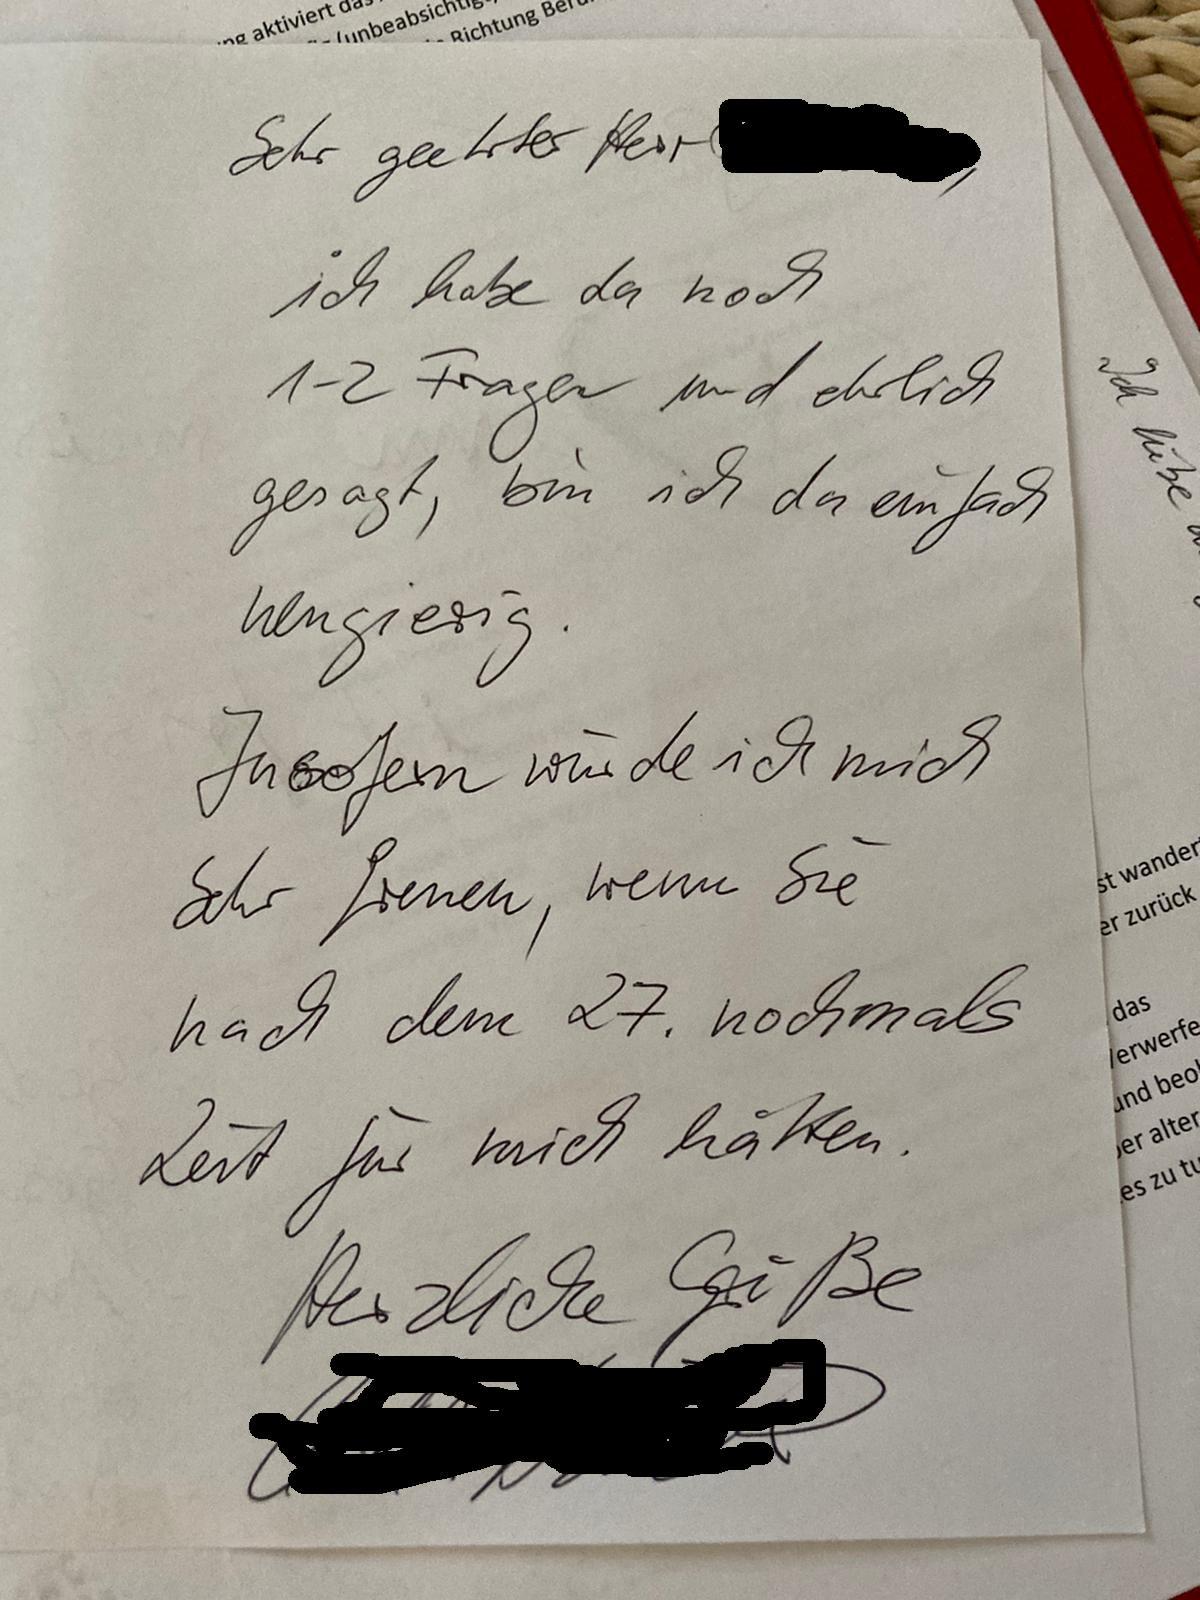 ng aktiviert das
(unbeabsichtigt
Richtung Beru
Sehr geehrter Herr
ich habe da noch
1-2 Fragen und ehrlich
gesagt, bin ich da einfach
neugierig.
Insofern würde ich mich
sehr freuen, wenn Sie
nach dem 27. nochmals
Zeit für mich hätten.
Herzliche Grüße
"Ich
st wandert
er zurück
das
Verwerfe
und beob
er alter
es zu tu